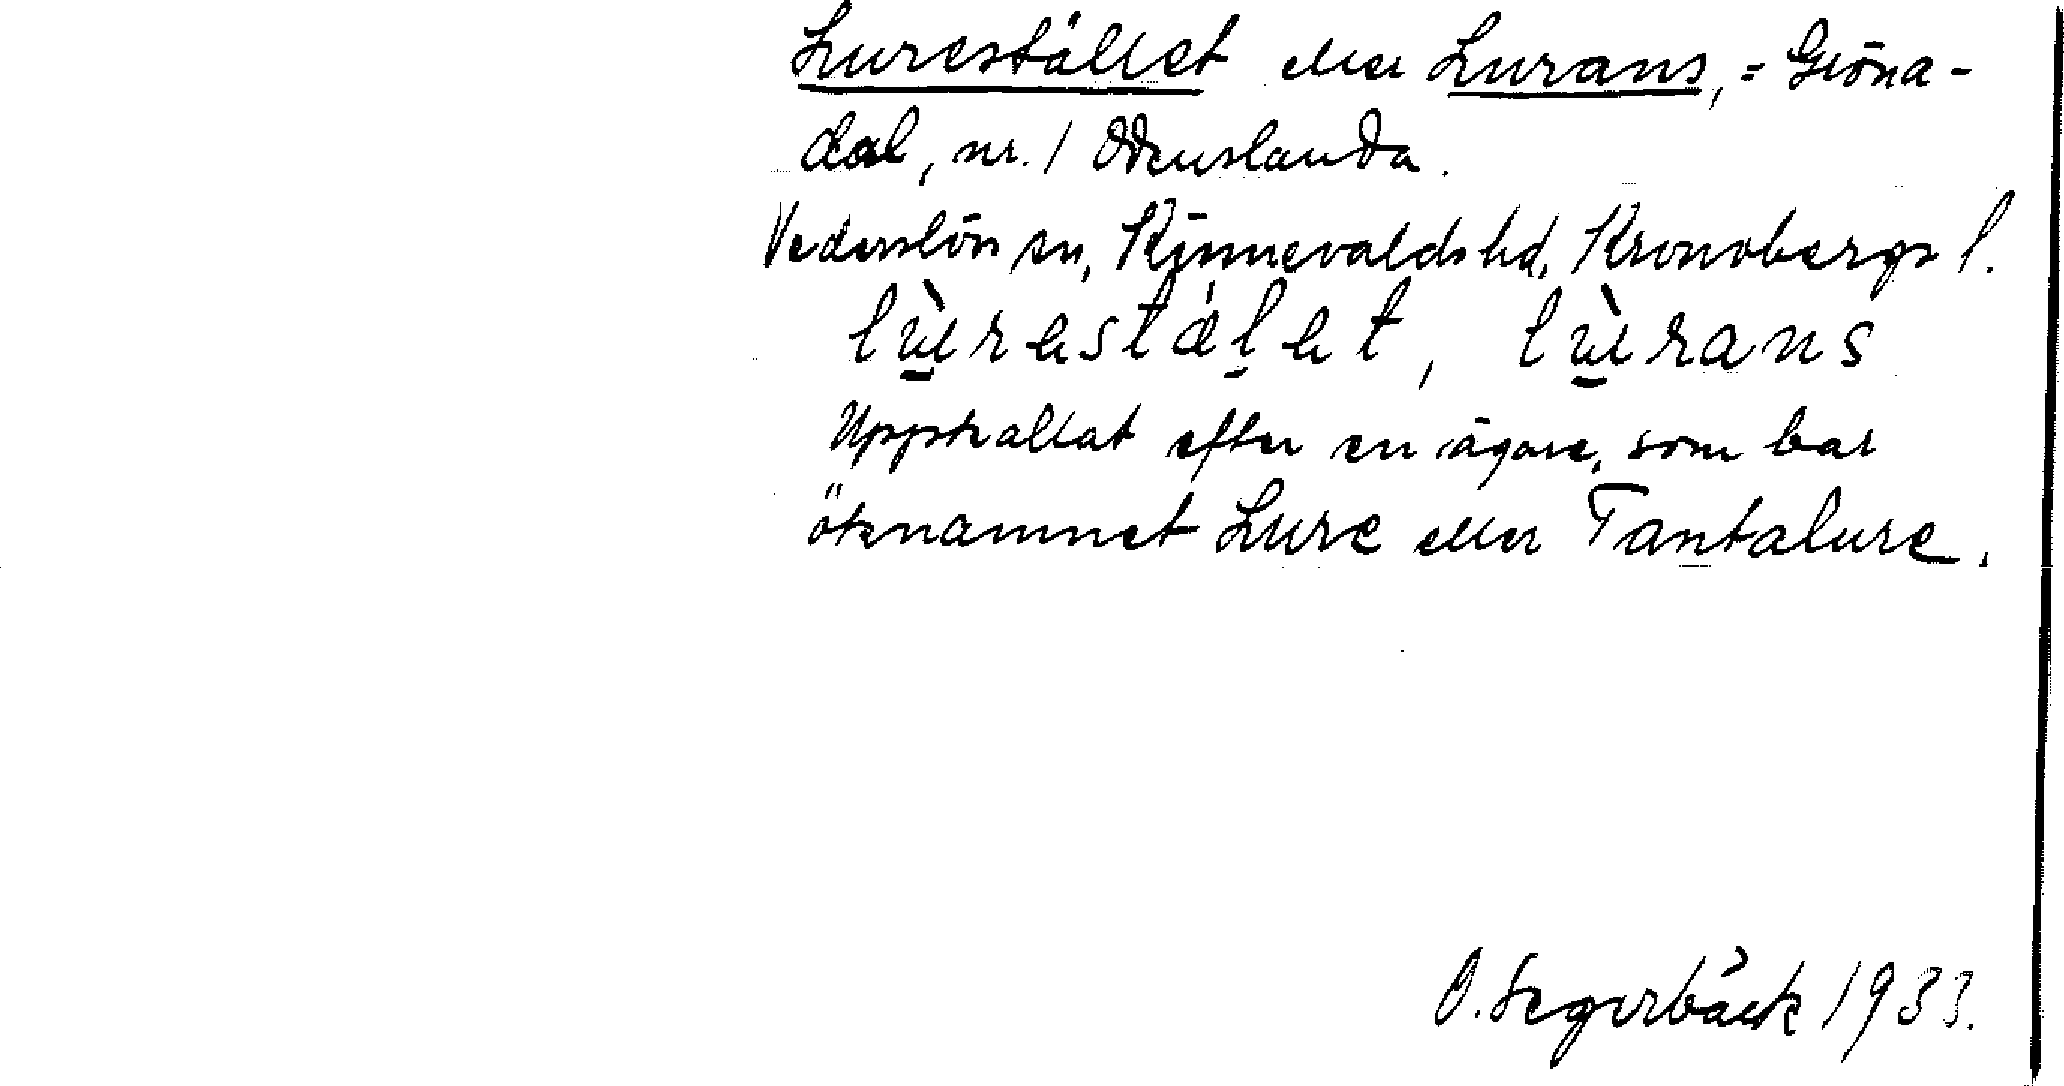 Lurestället eller Lurans, = Gröna-
dal, nr. 1 Odenslanda.
Vederslövs sn, Kinnevalds hd, Kronobergs l.
lùrestälet, lùrans
Uppkallat efter en ägare, som bar
öknamnet Lure eller Tantalure.
O. Segerbäck 1933.